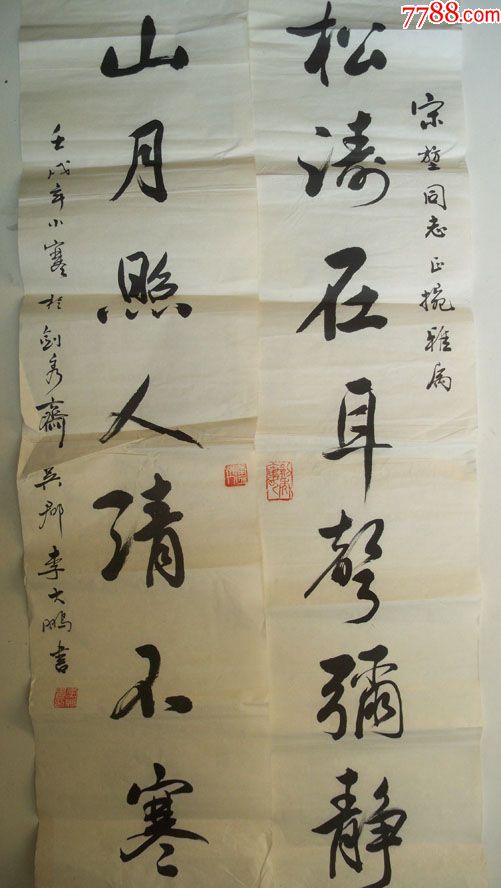 7788.com
宋堃同志正捥雅属
松涛在耳聲彌静
山月照人清不寒
壬戌年小寒於劍秀齋吳郡李大鵬書